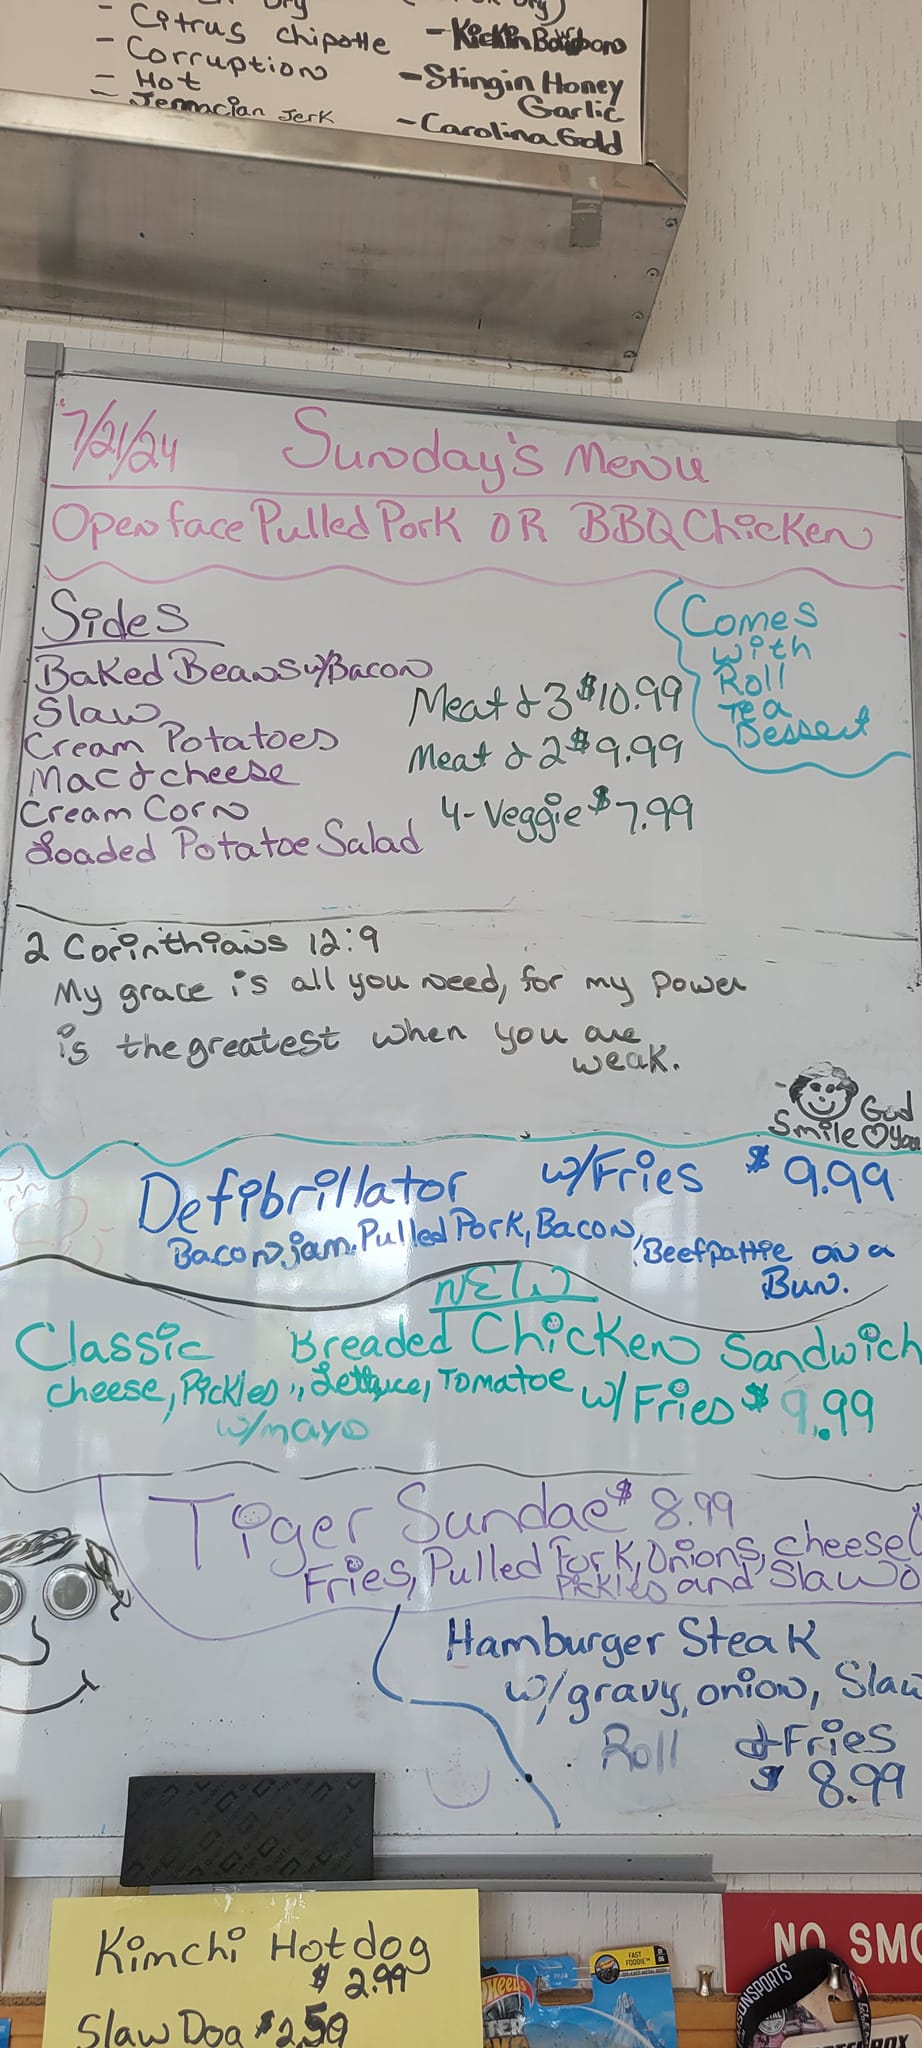 Dry
- Citrus chipotle
- Corruption
- Hot
- Jemacian Jerk
Dry)
- Kickin Bourbon
- Stingin Honey
Garlic
- Carolina Gold
7/21/24 Sunday's Menu
Open face Pulled Pork OR BBQ Chicken
Sides
Baked Beans w/Bacon
Slaw
Cream Potatoes
Mac & cheese
Cream Corn
Loaded Potatoe Salad
Meat & 3 $10.99
Meat & 2 $9.99
4-Veggie $7.99
Comes
with
Roll
Tea
Dessert
2 Corinthians 12:9
My grace is all you need, for my power
is the greatest when you are
weak.
Smile God
♡ You
Defibrillator w/Fries $9.99
Bacon jam, Pulled Pork, Bacon, Beef pattie on a
Bun.
NEW
Classic Breaded Chicken Sandwich
Cheese, Pickles, Lettuce, Tomatoe w/Fries $9.99
w/mayo
Tiger Sundae $8.99
Fries, Pulled Pork, Onions, Cheese
Pickles and Slaw
Hamburger Steak
w/gravy, onion, Slaw
Roll & Fries
$8.99
Kimchi Hotdog
$2.99
Slaw Dog $2.50
NO SMO
WHEELS
FAST
FOODIE